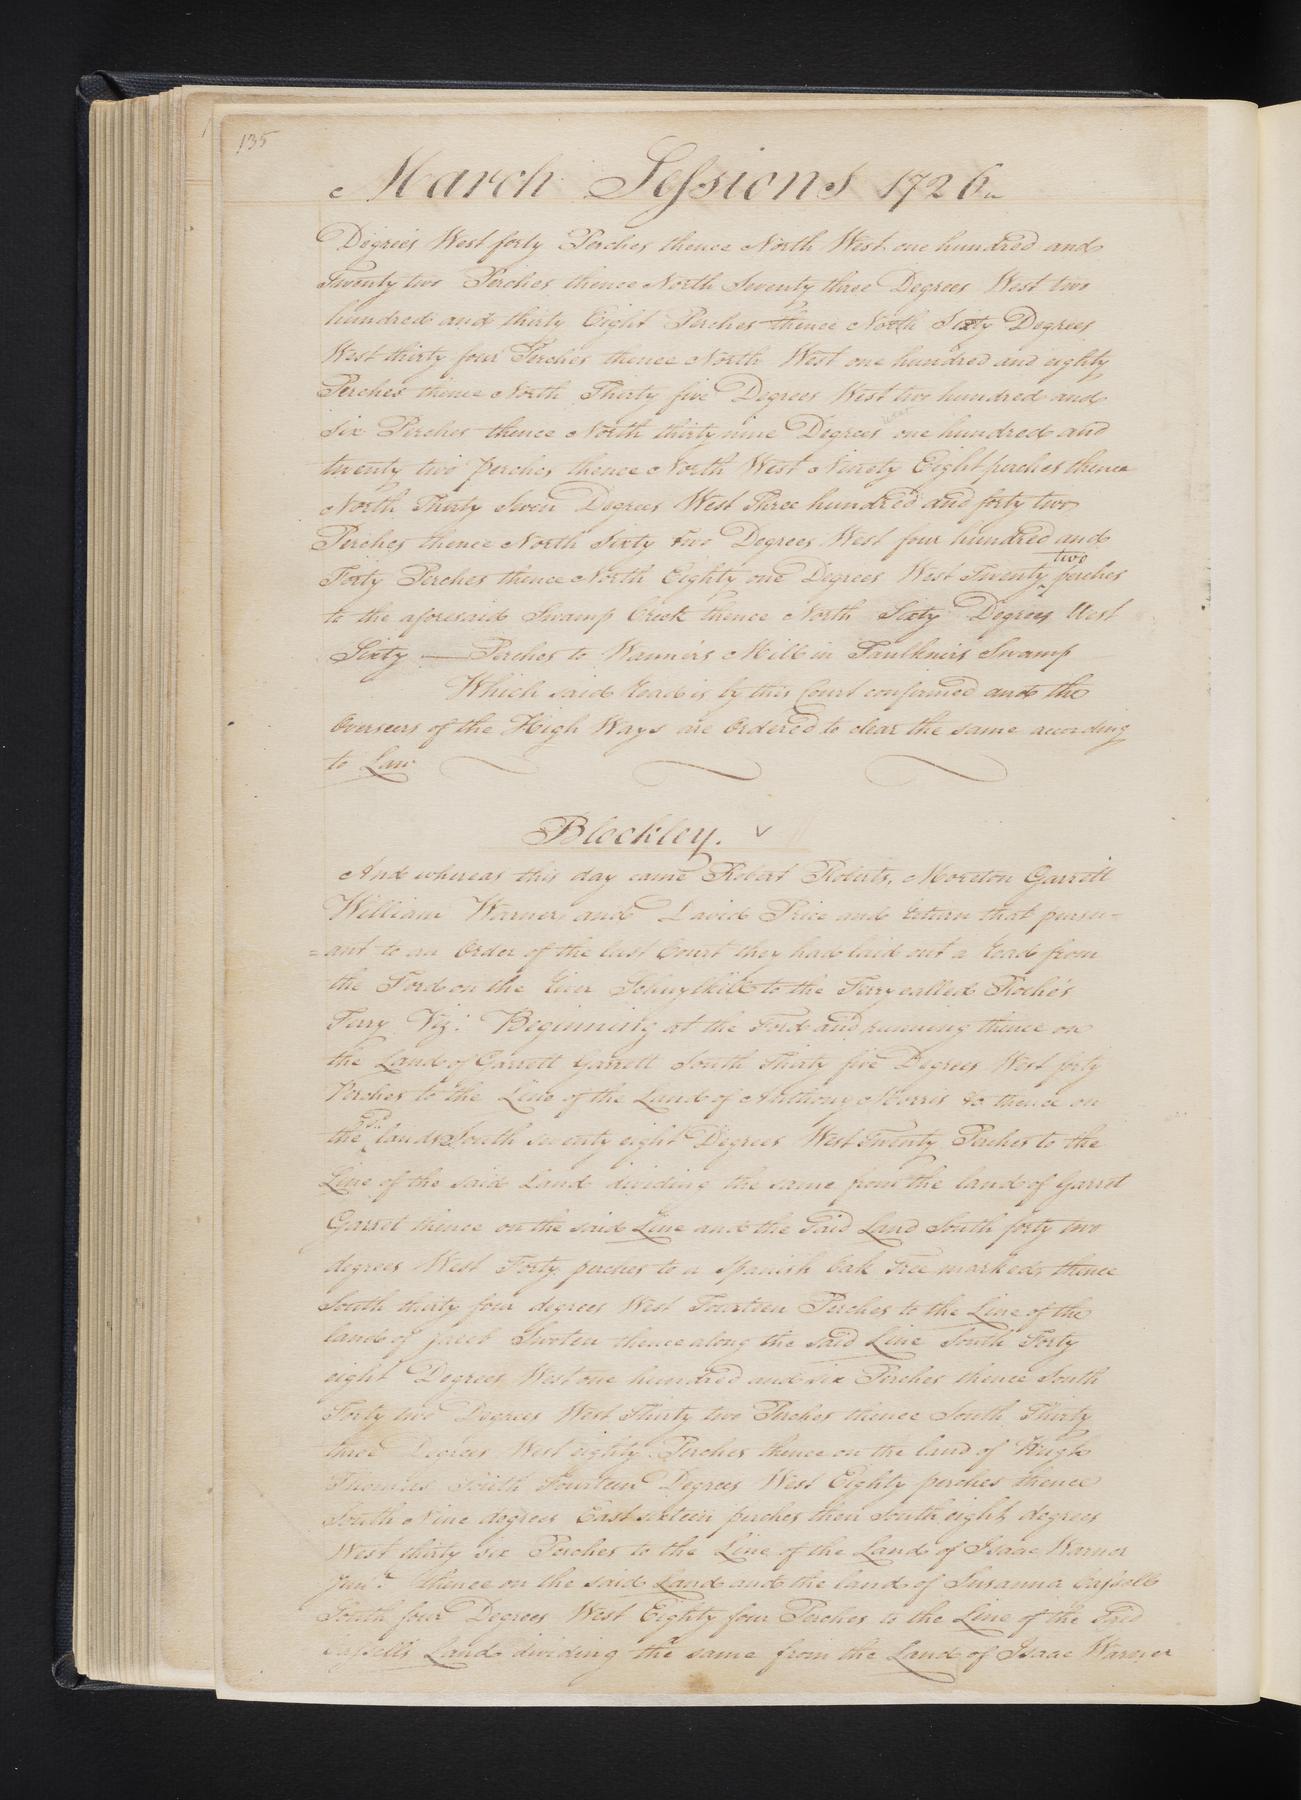 135
March Sessions 1726
Degrees West forty Perches thence North West one hundred and
Twenty two Perches thence North Seventy three Degrees West two
hundred and thirty Eight Perches thence North Sixty Degrees
West thirty four Perches thence North West one hundred and eighty
Perches thence North Thirty five Degrees West two hundred and
six Perches thence North thirty nine Degrees West one hundred and
twenty two perches thence North West Ninety Eight perches thence
North Thirty Seven Degrees West Three hundred and forty two
Perches thence North Sixty two Degrees West four hundred and
Forty Perches thence North Eighty one Degrees West Twenty two perches
to the aforesaid Swamp Creek thence North Sixty Degrees West
Sixty — Perches to Wanner's Mill in Faulkners Swamp
Which said Road is by this Court confirmed and the
Overseers of the High Ways are Ordered to clear the same according
to Law
Blockley. v
And whereas this day came Robert Roberts, Moreton Garrett
William Warner and David Price and return that pursu=
=ant to an Order of the last Court they had laid out a road from
the Ford on the River Schuylkill to the Ferry called Roche's
Ferry Viz: Beginning at the Ford and running thence on
the Land of Garrett Garrett South Thirty five Degrees West forty
Perches to the Line of the Land of Anthony Morris &c thence on
the sd. lands South seventy eight Degrees West Twenty Perches to the
Line of the said Land dividing the same from the land of Garret
Garret thence on the said Line and the said Land South forty two
degrees West Forty perches to a Spanish Oak Tree marked, thence
South thirty four degrees West Fourteen Perches to the Line of the
land of Jacob Swoten thence along the said Line South Forty
eight Degrees West one hundred and six Perches thence South
Forty two Degrees West Thirty two Perches thence South Thirty
three Degrees West eighty Perches thence on the land of Hugh
Thomas South Fourteen Degrees West Eighty perches thence
South Nine degrees East sixteen perches then South eight degrees
West thirty six Perches to the Line of the Land of Isaac Warner
Junr. thence on the said Land and the land of Susanna Cassell
South four Degrees West Eighty four Perches to the Line of the said
Cassells Land dividing the same from the Land of Isaac Warner